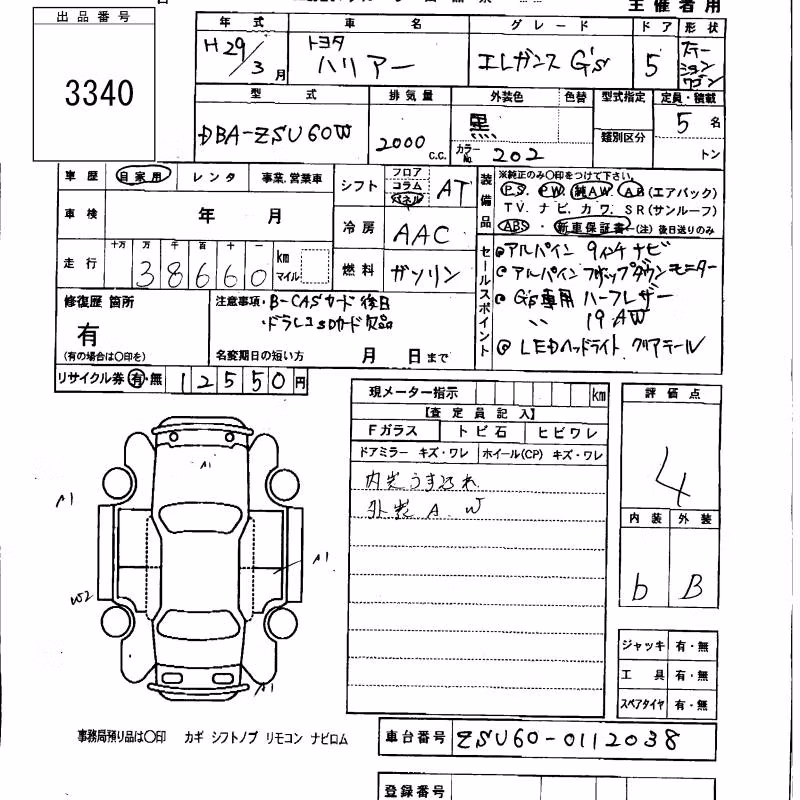 主催者用
出品番号
3340
年式 車名 グレード ドア 形状
H29/3月 トヨタ ハリアー エレガンス G's 5 ステーションワゴン
型式 排気量 外装色 色替 型式指定 定員・積載
DBA-ZSU60W 2000 c.c. 黒 カラーNo. 202 類別区分 5名 トン
車歴 自家用 レンタ 事業.営業車
車検 年 月
走行 十万 万 千 百 十 一 38660 km マイル
シフト フロア コラム パネル AT
冷房 AAC
燃料 ガソリン
装備品 ※純正のみ〇印をつけて下さい。
P.S. P.W. 純A.W. A.B (エアバック)
T.V. ナビ. カワ. S.R (サンルーフ)
ABS ・ 新車保証書 -(注) 後日送りのみ
セールスポイント
アルパイン 9インチナビ
アルパイン フリップダウンモニター
G's専用 ハーフレザー
〃 19AW
LEDヘッドライト クリアテール
修復歴 箇所
有
(有の場合は〇印を)
注意事項・B-CASカード後日
・ドラレコSDカード欠品
名変期日の短い方 月 日まで
リサイクル券 有・無 12550円
現メーター指示 km
【査定員記入】
Fガラス トビ石 ヒビワレ
ドアミラー キズ・ワレ ホイール(CP) キズ・ワレ
内装うす汚れ
外装 A. W
評価点
4
内装 外装
b B
A1
A1
A1
W2
A1
ジャッキ 有・無
工具 有・無
スペアタイヤ 有・無
事務局預り品は〇印 カギ シフトノブ リモコン ナビロム
車台番号 ZSU60-0112038
登録番号